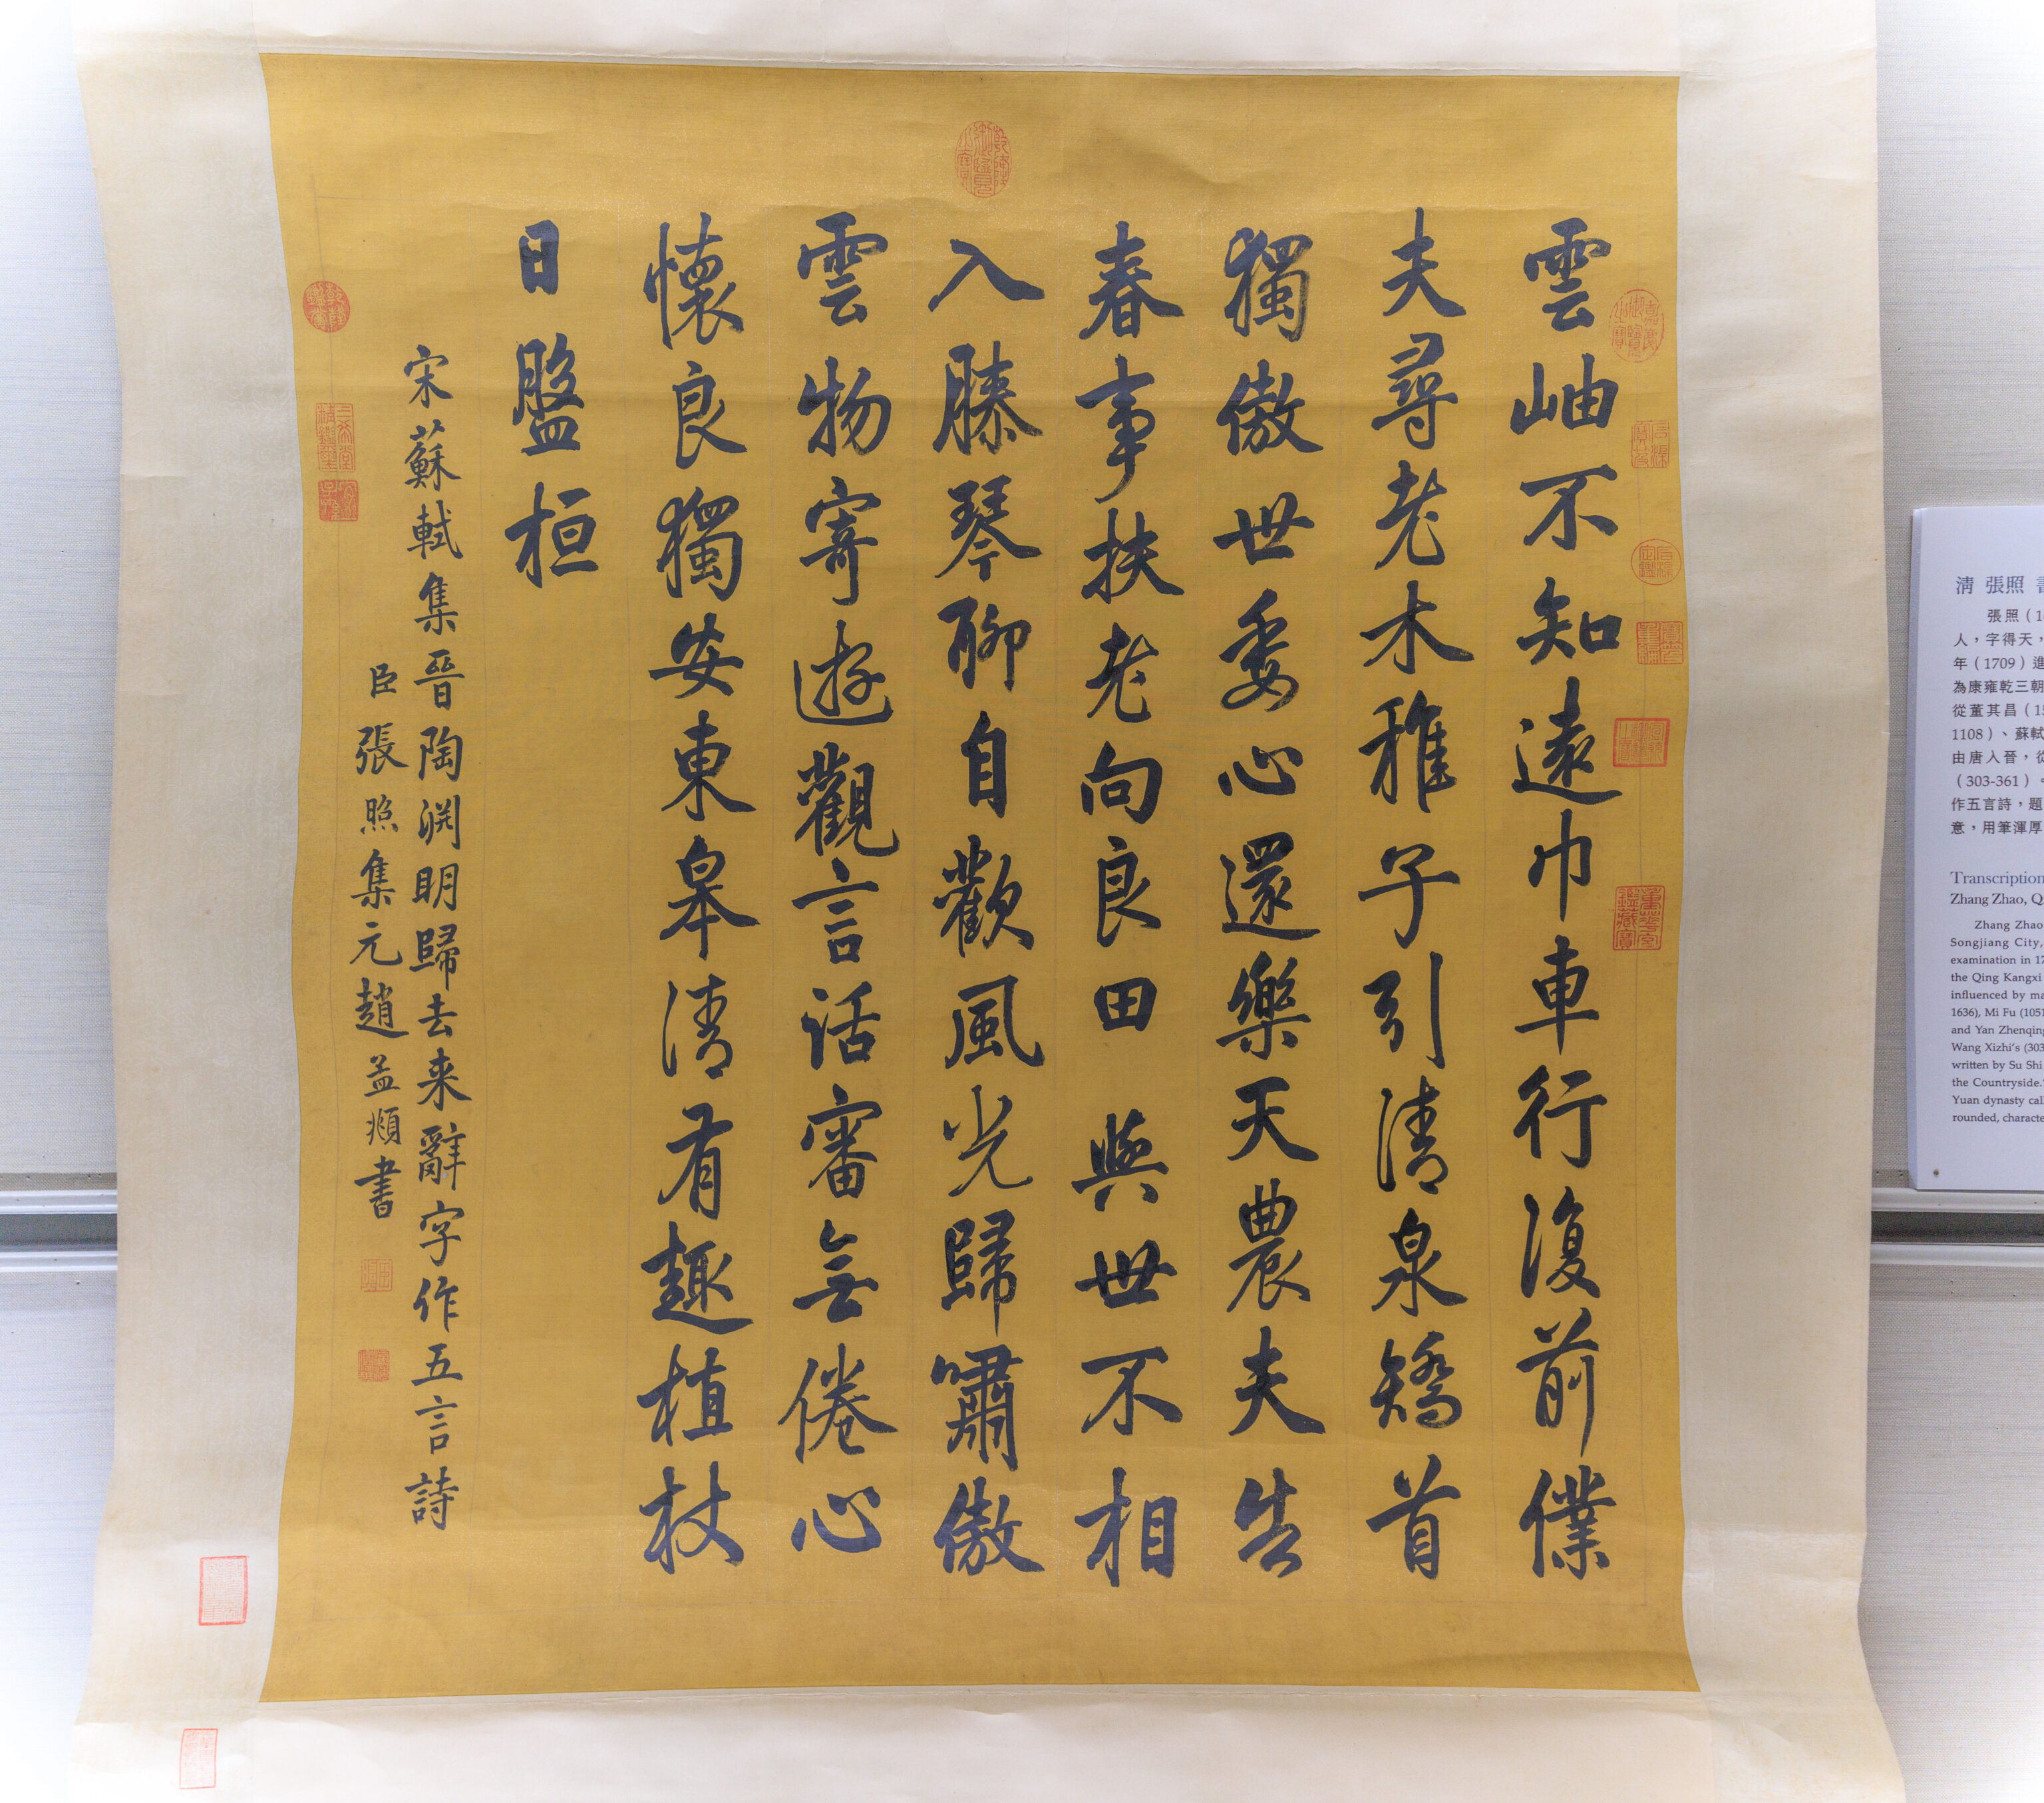 雲岫不知遠巾車行復前僕
夫尋老木稚子引清泉矯首
獨傲世委心還樂天農夫告
春事扶老向良田與世不相
入膝琴聊自歡風光歸嘯傲
雲物寄遊觀言話審無倦心
懷良獨安東皋清有趣植杖
日盤桓
宋蘇軾集晉陶淵明歸去来辭字作五言詩
臣張照集元趙孟頫書
清 張照
張照（1
人，字得天，
年（1709）進
為康雍乾三朝
從董其昌（15
1108）、蘇軾
由唐入晉，從
（303-361）
作五言詩，題
意，用筆渾厚
Transcription
Zhang Zhao, Q
Zhang Zhao
Songjiang City,
examination in 17
the Qing Kangxi
influenced by ma
1636), Mi Fu (1051
and Yan Zhenqing
Wang Xizhi's (303
written by Su Shi
the Countryside."
Yuan dynasty call
rounded, characte